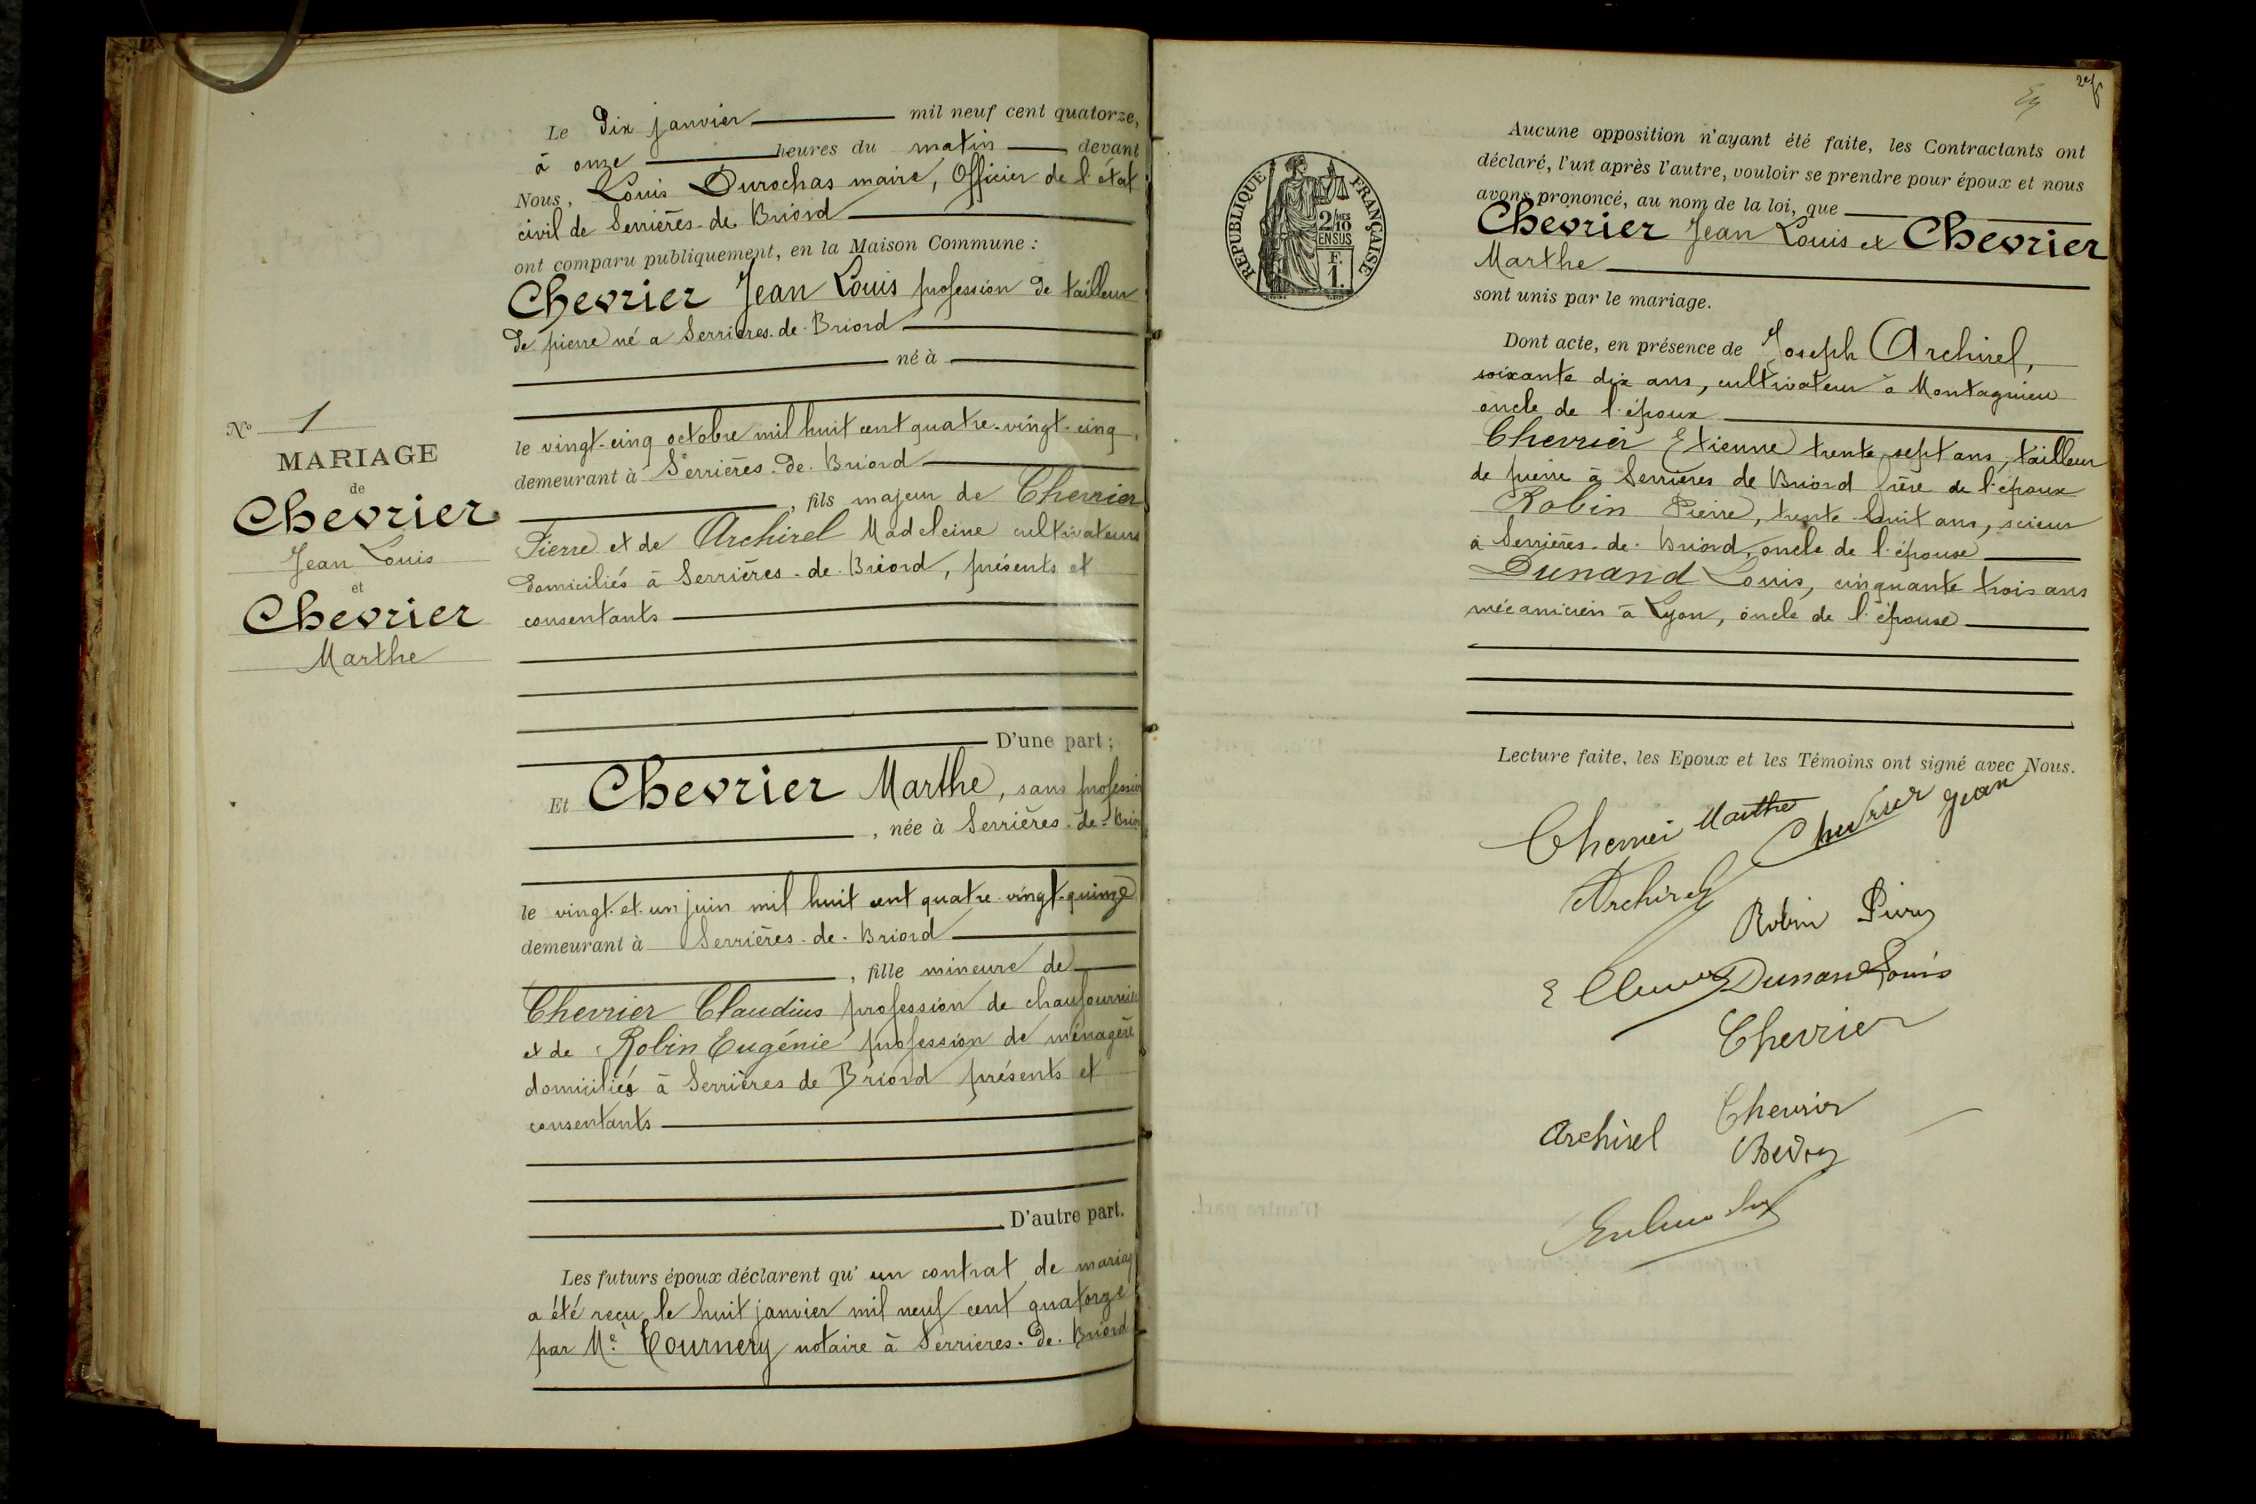 Le Dix janvier mil neuf cent quatorze,
à onze heures du matin devant
Nous, Louis Durochas maire, Officier de l'état
civil de Serrières-de-Briord
ont comparu publiquement, en la Maison Commune :
Chevrier Jean Louis profession de tailleur
de pierre né a Serrières-de-Briord
né à
le vingt-cinq octobre mil huit cent quatre-vingt-cinq,
demeurant à Serrières-de-Briord
, fils majeur de Chevrier
Pierre et de Archirel Madeleine cultivateurs
domiciliés à Serrières-de-Briord, présents et
consentants
D'une part ;
Et Chevrier Marthe, sans profession
, née à Serrières-de-Brio
le vingt-et-un juin mil huit cent quatre-vingt-quinze
demeurant à Serrières-de-Briord
, fille mineure de
Chevrier Claudius profession de chaufournier
et de Robin Eugénie profession de ménagère
domiciliés à Serrières de Briord présents et
consentants
D'autre part.
Les futurs époux déclarent qu'un contrat de mariag
a été reçu le huit janvier mil neuf cent quatorze
par Me Tournery notaire à Serrières-de-Briord
No 1
MARIAGE
de
Chevrier
Jean Louis
et
Chevrier
Marthe
RÉPUBLIQUE FRANÇAISE
2/10MES
EN SUS
F.
1.
Aucune opposition n'ayant été faite, les Contractants ont
déclaré, l'un après l'autre, vouloir se prendre pour époux et nous
avons prononcé, au nom de la loi, que
Chevrier Jean Louis et Chevrier
Marthe
sont unis par le mariage.
Dont acte, en présence de Joseph Archirel,
soixante dix ans, cultivateur à Montagnieu
oncle de l'époux
Chevrier Etienne trente sept ans, tailleur
de pierre à Serrières de Briord frère de l'époux
Robin Pierre, trente huit ans, scieur
à Serrières-de-Briord, oncle de l'épouse
Dunand Louis, cinquante trois ans
mécanicien à Lyon, oncle de l'épouse
Lecture faite, les Epoux et les Témoins ont signé avec Nous.
Chevrier Marthe Chevrier Jean
Archirel
Robin Pierre
Dunand Louis
Chevrier
Chevrier
Archirel